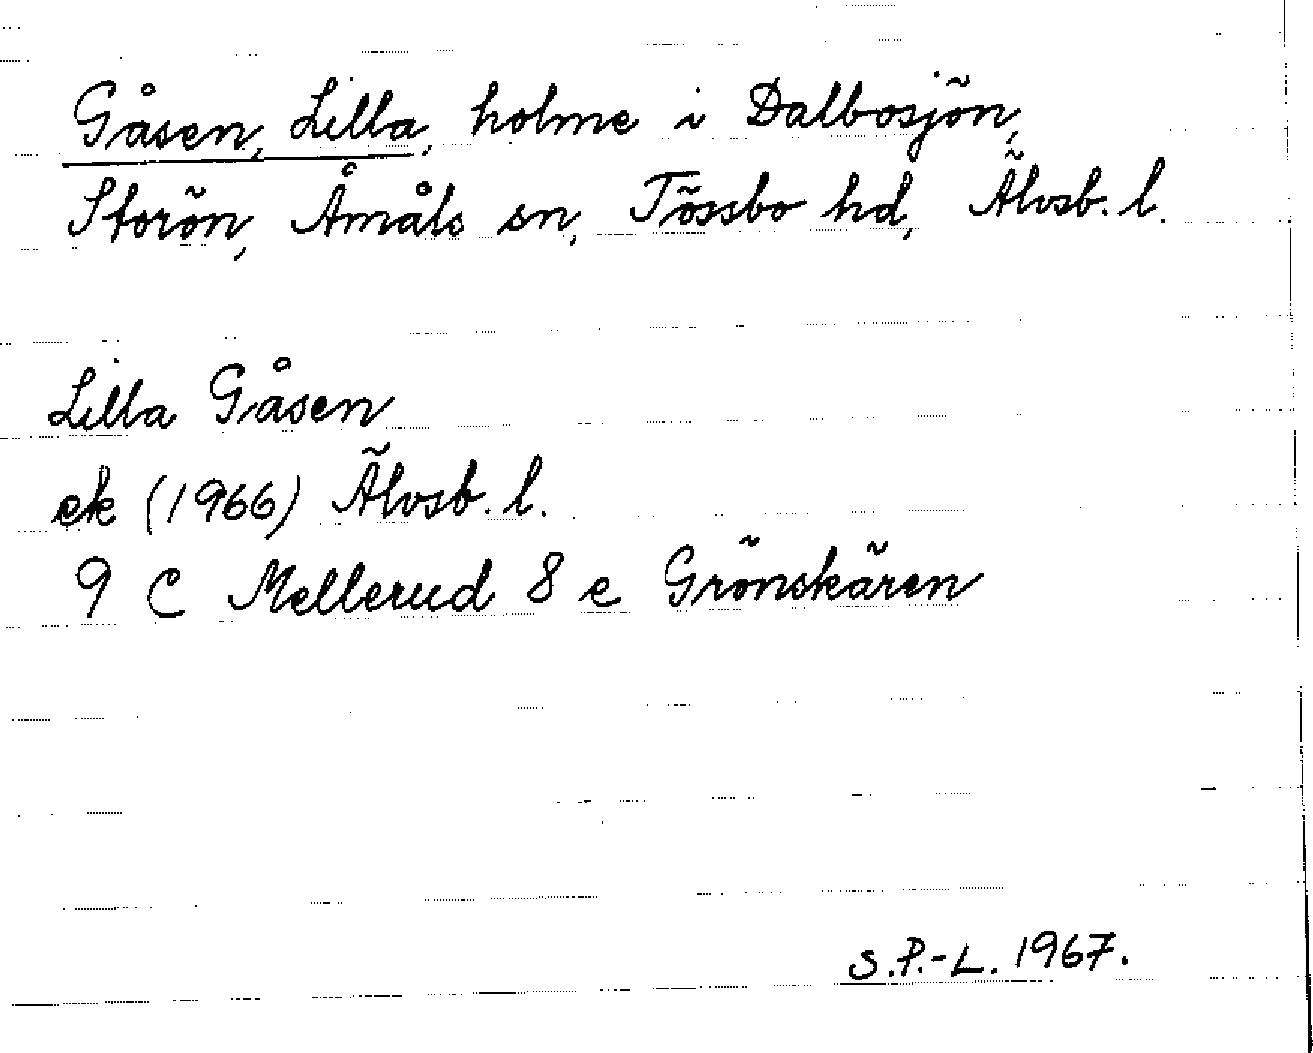 Gåsen, Lilla, holme i Dalbosjön,
Storön, Åmåls sn, Tössbo hd, Älvsb. l.
Lilla Gåsen
ek (1966) Älvsb. l.
9 C Mellerud 8 e Grönskären
S.P.-L. 1967.